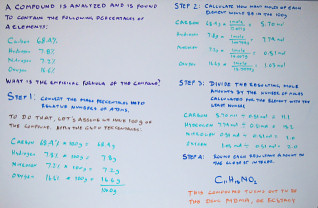 A COMPOUND IS ANALYZED AND IS FOUND
TO CONTAIN THE FOLLOWING PERCENTAGES OF
4 ELEMENTS:
Carbon 68.4%
Hydrogen 7.8%
Nitrogen 7.2%
Oxygen 16.6%
WHAT IS THE EMPIRICAL FORMULA OF THE COMPOUND?
STEP 1: CONVERT THE MASS PERCENTAGES INTO
RELATIVE NUMBERS OF ATOMS.
TO DO THAT, LET'S ASSUME WE HAVE 100g OF
THE COMPOUND. WITH THE GIVEN PERCENTAGES:
Carbon 68.4% × 100g = 68.4g
Hydrogen 7.8% × 100g = 7.8g
Nitrogen 7.2% × 100g = 7.2g
Oxygen 16.6% × 100g = 16.6g
100g
STEP 2: CALCULATE HOW MANY MOLES OF EACH
ELEMENT WOULD BE IN THE 100g
CARBON 68.4g × mole = 5.70 mol
HYDROGEN 7.8g × mole = 7.74 mol
NITROGEN 7.2g × mole = 0.51 mol
OXYGEN 16.6g × mole
STEP 3: DIVIDE THE RESULTING MOLE
AMOUNTS BY THE NUMBER OF MOLES
CALCULATED FOR THE ELEMENT WITH THE
LEAST NUMBER
CARBON 5.70 mol ÷ 0.51 mol = 11.1
HYDROGEN 7.74 mol ÷ 0.51 mol
NITROGEN 0.51 mol ÷ 0.51 mol = 1.0
OXYGEN ÷ 0.51 mol
STEP 4: ROUND EACH RESULTING AMOUNT TO
THE CLOSEST INTEGER.
C₁₁H₁₅NO₂
THIS COMPOUND TURNS OUT TO BE
THE DRUG MDMA, OR ECSTASY